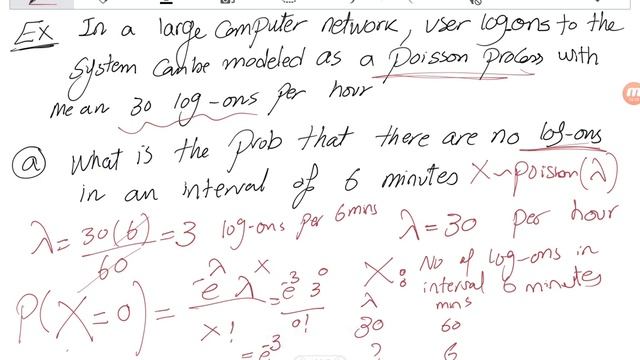 Ex In a large computer network, user logons to the
system can be modeled as a Poisson Process with
mean 30 log-ons per hour
(a) What is the prob that there are no log-ons
in an interval of 6 minutes X~poission(λ)
λ = 30(6)/60 = 3 log-ons per 6 mins λ = 30 per hour
X: No of log-ons in
interval 6 minutes
P(X=0) = e^-λ λ^x / x! = e^-3 3^0 / 0!
λ mins
30 60
= e^-3 ? 6